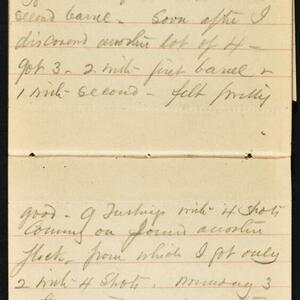 second barrel - Soon after I
discovered another lot of 4 -
got 3 - 2 with first barrel &
1 with second - felt pretty
good - 9 Turkeys with 4 shots
Coming on found another
flock, from which I got only
2 with 4 shots.
3